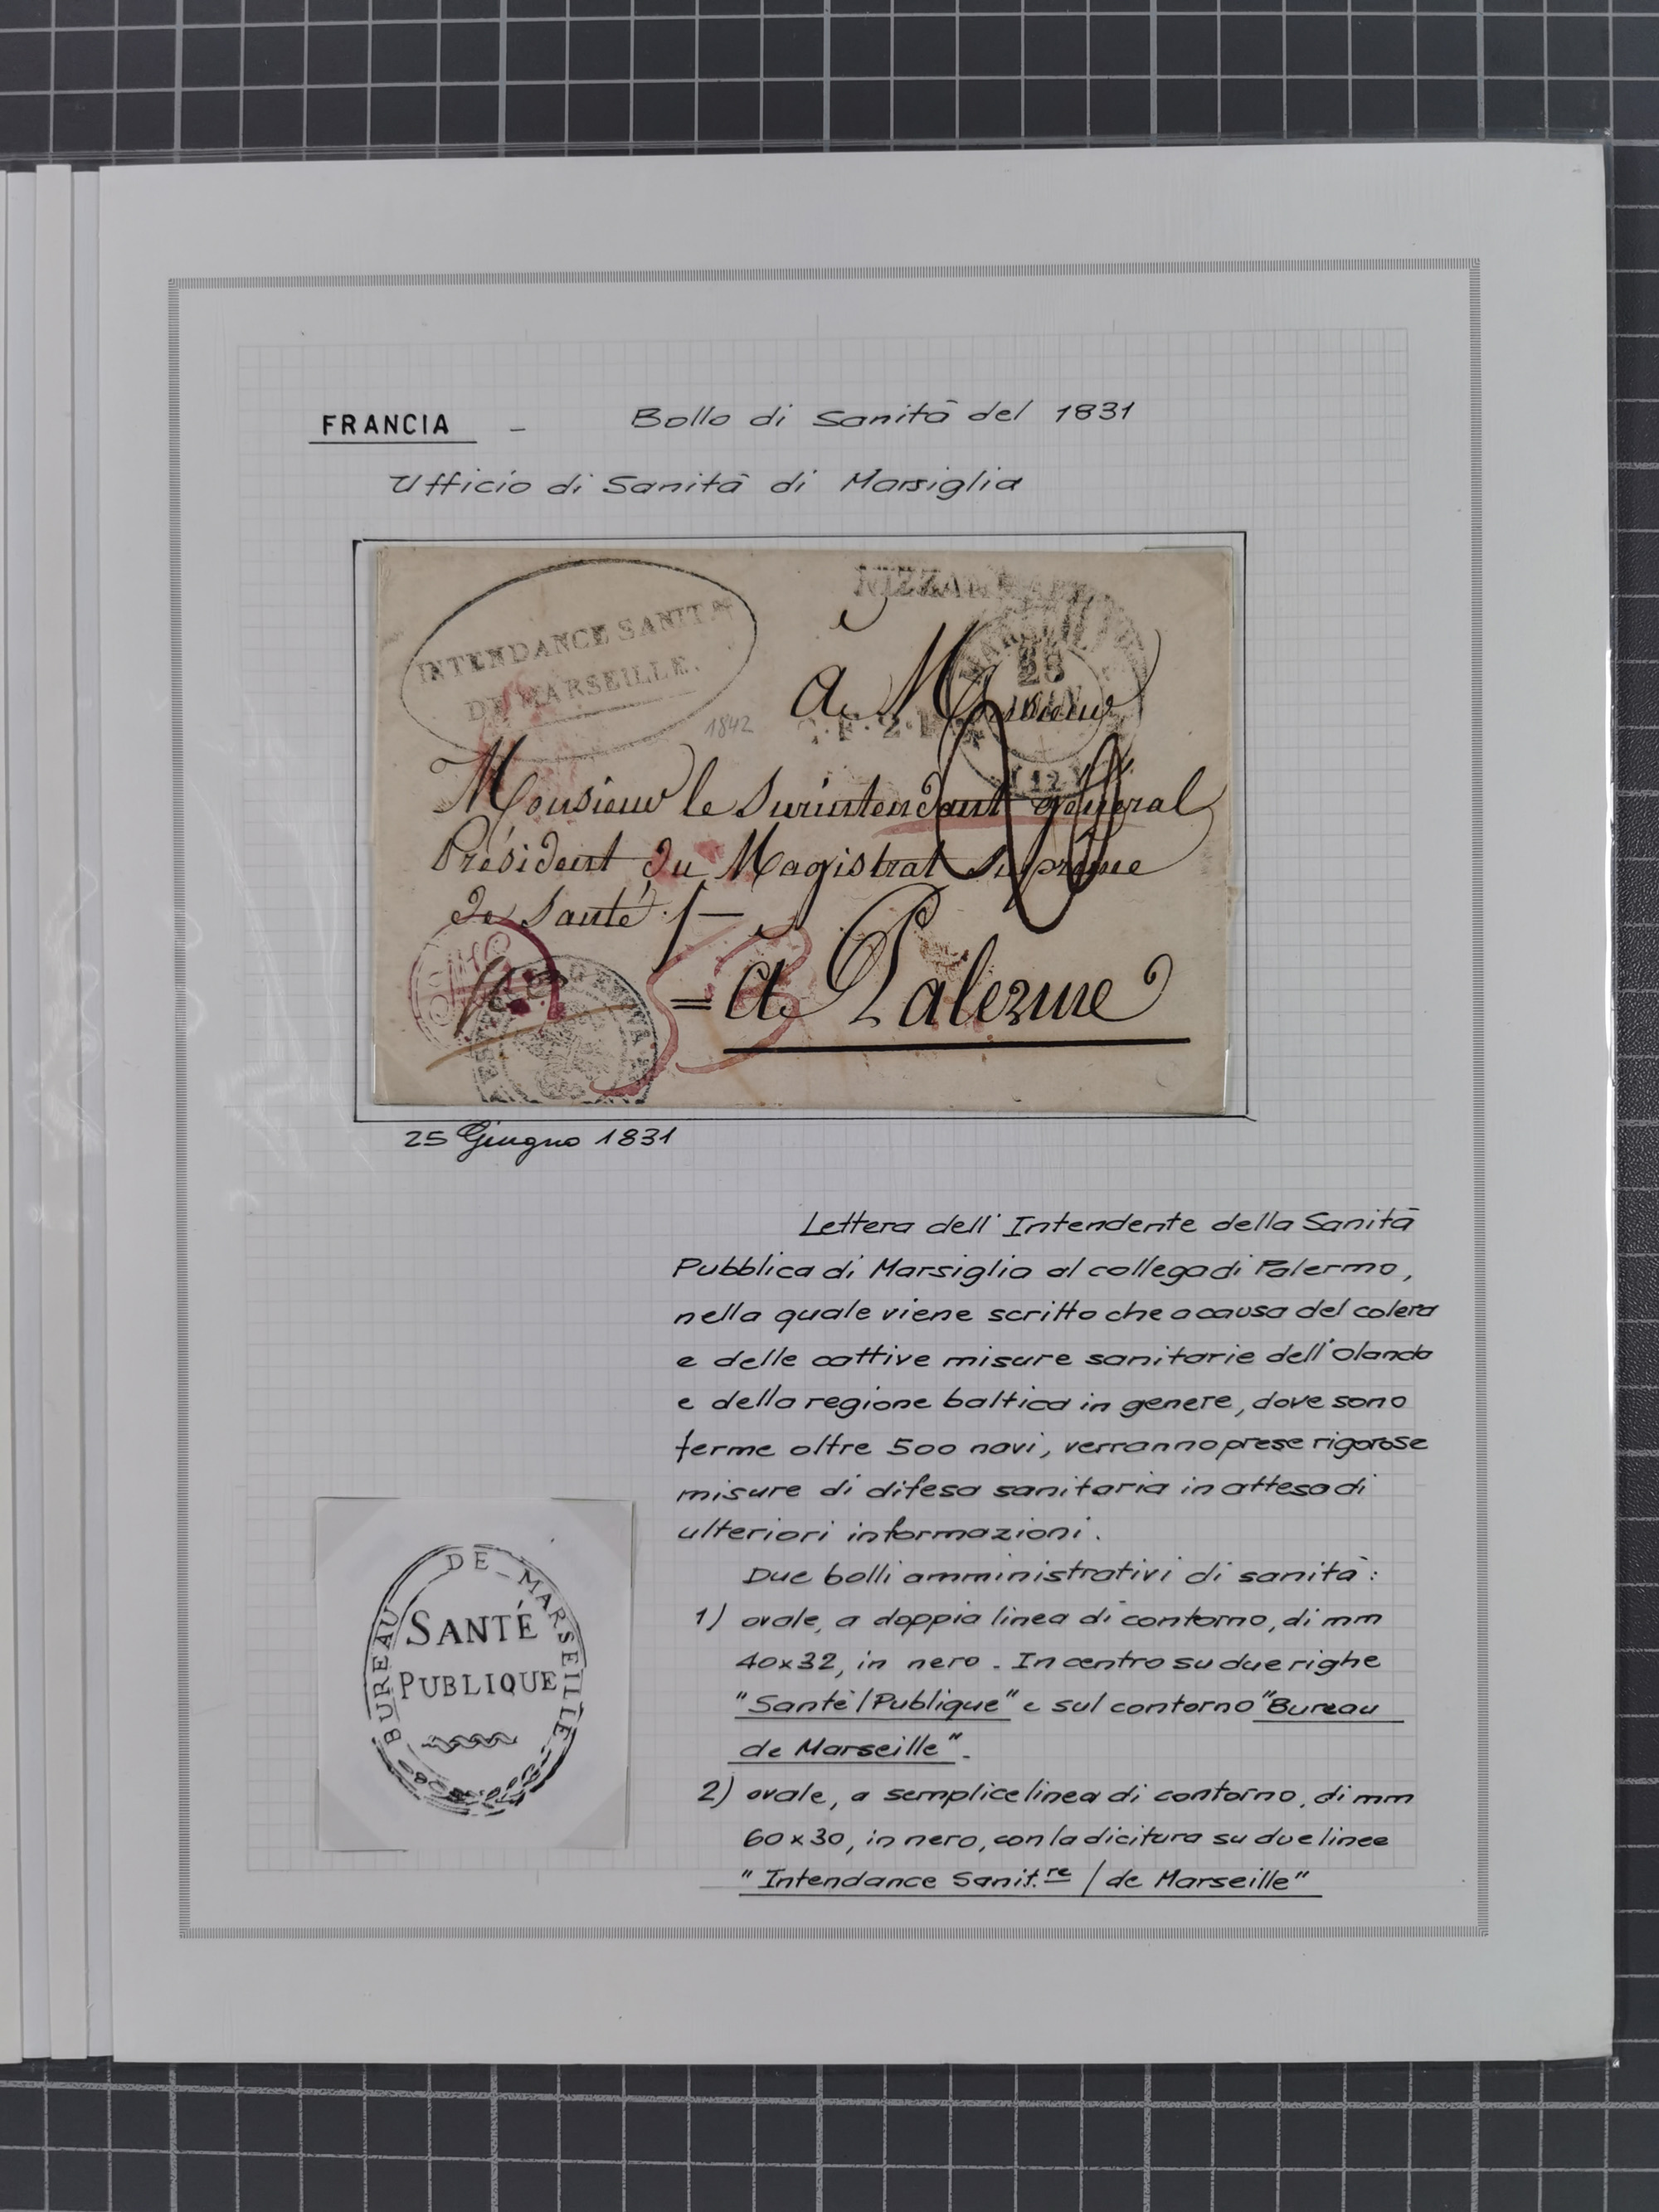 FRANCIA - Bollo di Sanità del 1831
Ufficio di Sanità di Marsiglia
INTENDANCE SANIT.re
DE MARSEILLE.
NIZZA
28
JUIN
(12)
1842
C.F.2.R.
A Monsieur
Monsieur le Surintendant général
Président du Magistrat Suprême
de Santé ./—
= à Palerme
25 Giugno 1831
Lettera dell'Intendente della Sanità
Pubblica di Marsiglia al collega di Palermo,
nella quale viene scritto che a causa del colera
e delle cattive misure sanitarie dell'Olanda
e della regione baltica in genere, dove sono
ferme oltre 500 navi, verranno prese rigorose
misure di difesa sanitaria in attesa di
ulteriori informazioni.
Due bolli amministrativi di sanità:
1) ovale, a doppia linea di contorno, di mm
40x32, in nero. In centro su due righe
"Santè/Publique" e sul contorno "Bureau
de Marseille".
2) ovale, a semplice linea di contorno, di mm
60x30, in nero, con la dicitura su due linee
"Intendance Sanit.re / de Marseille"
BUREAU DE MARSEILLE
SANTÉ
PUBLIQUE